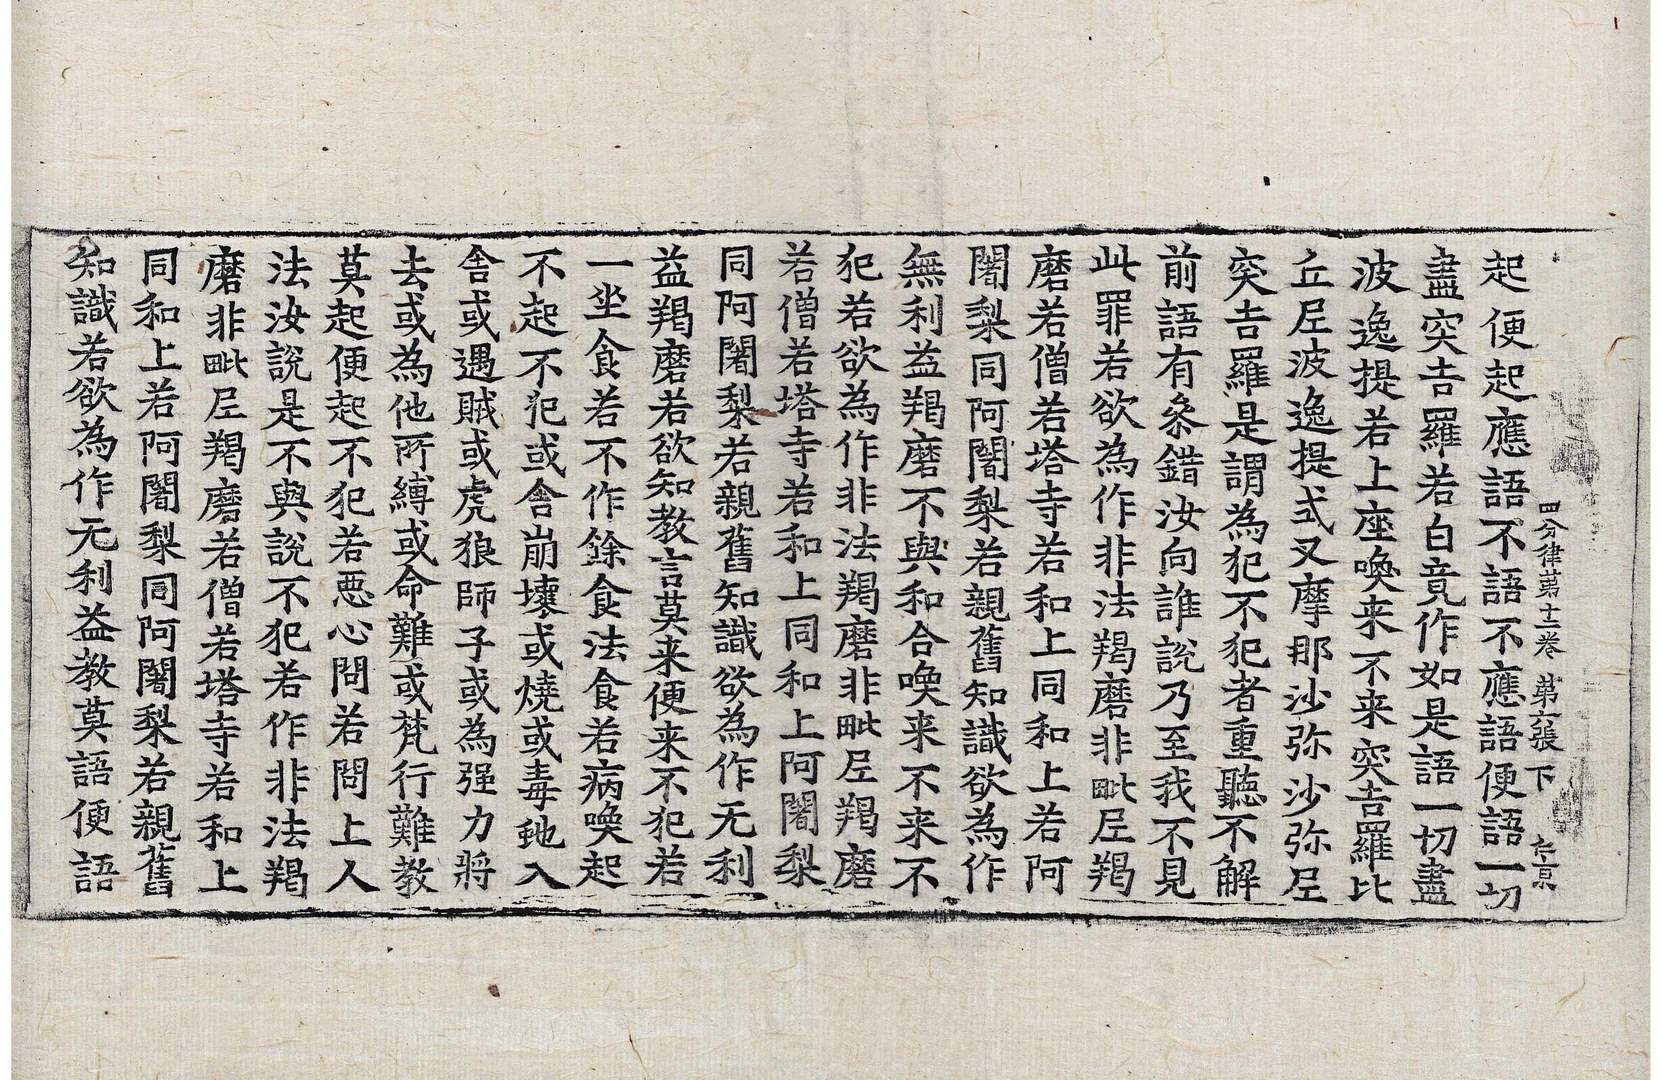 四分律第十二卷 第六張 下
起便起應語不語不應語便語一切
盡突吉羅若白竟作如是語一切盡
波逸提若上座喚来不来突吉羅比
丘尼波逸提式叉摩那沙弥沙弥尼
突吉羅是謂為犯不犯者重聽不解
前語有叅錯汝向誰說乃至我不見
此罪若欲為作非法羯磨非毗尼羯
磨若僧若塔寺若和上同和上若阿
闍梨同阿闍梨若親舊知識欲為作
無利益羯磨不與和合喚来不来不
犯若欲為作非法羯磨非毗尼羯磨
若僧若塔寺若和上同和上阿闍梨
同阿闍梨若親舊知識欲為作无利
益羯磨若欲知教言莫来便来不犯若
一坐食若不作餘食法食若病喚起
不起不犯或舍崩壞或燒或毒虵入
舍或遇賊或虎狼師子或為强力將
去或為他所縛或命難或梵行難教
莫起便起不犯若惡心問若問上人
法汝說是不與說不犯若作非法羯
磨非毗尼羯磨若僧若塔寺若和上
同和上若阿闍梨同阿闍梨若親舊
知識若欲為作无利益教莫語便語